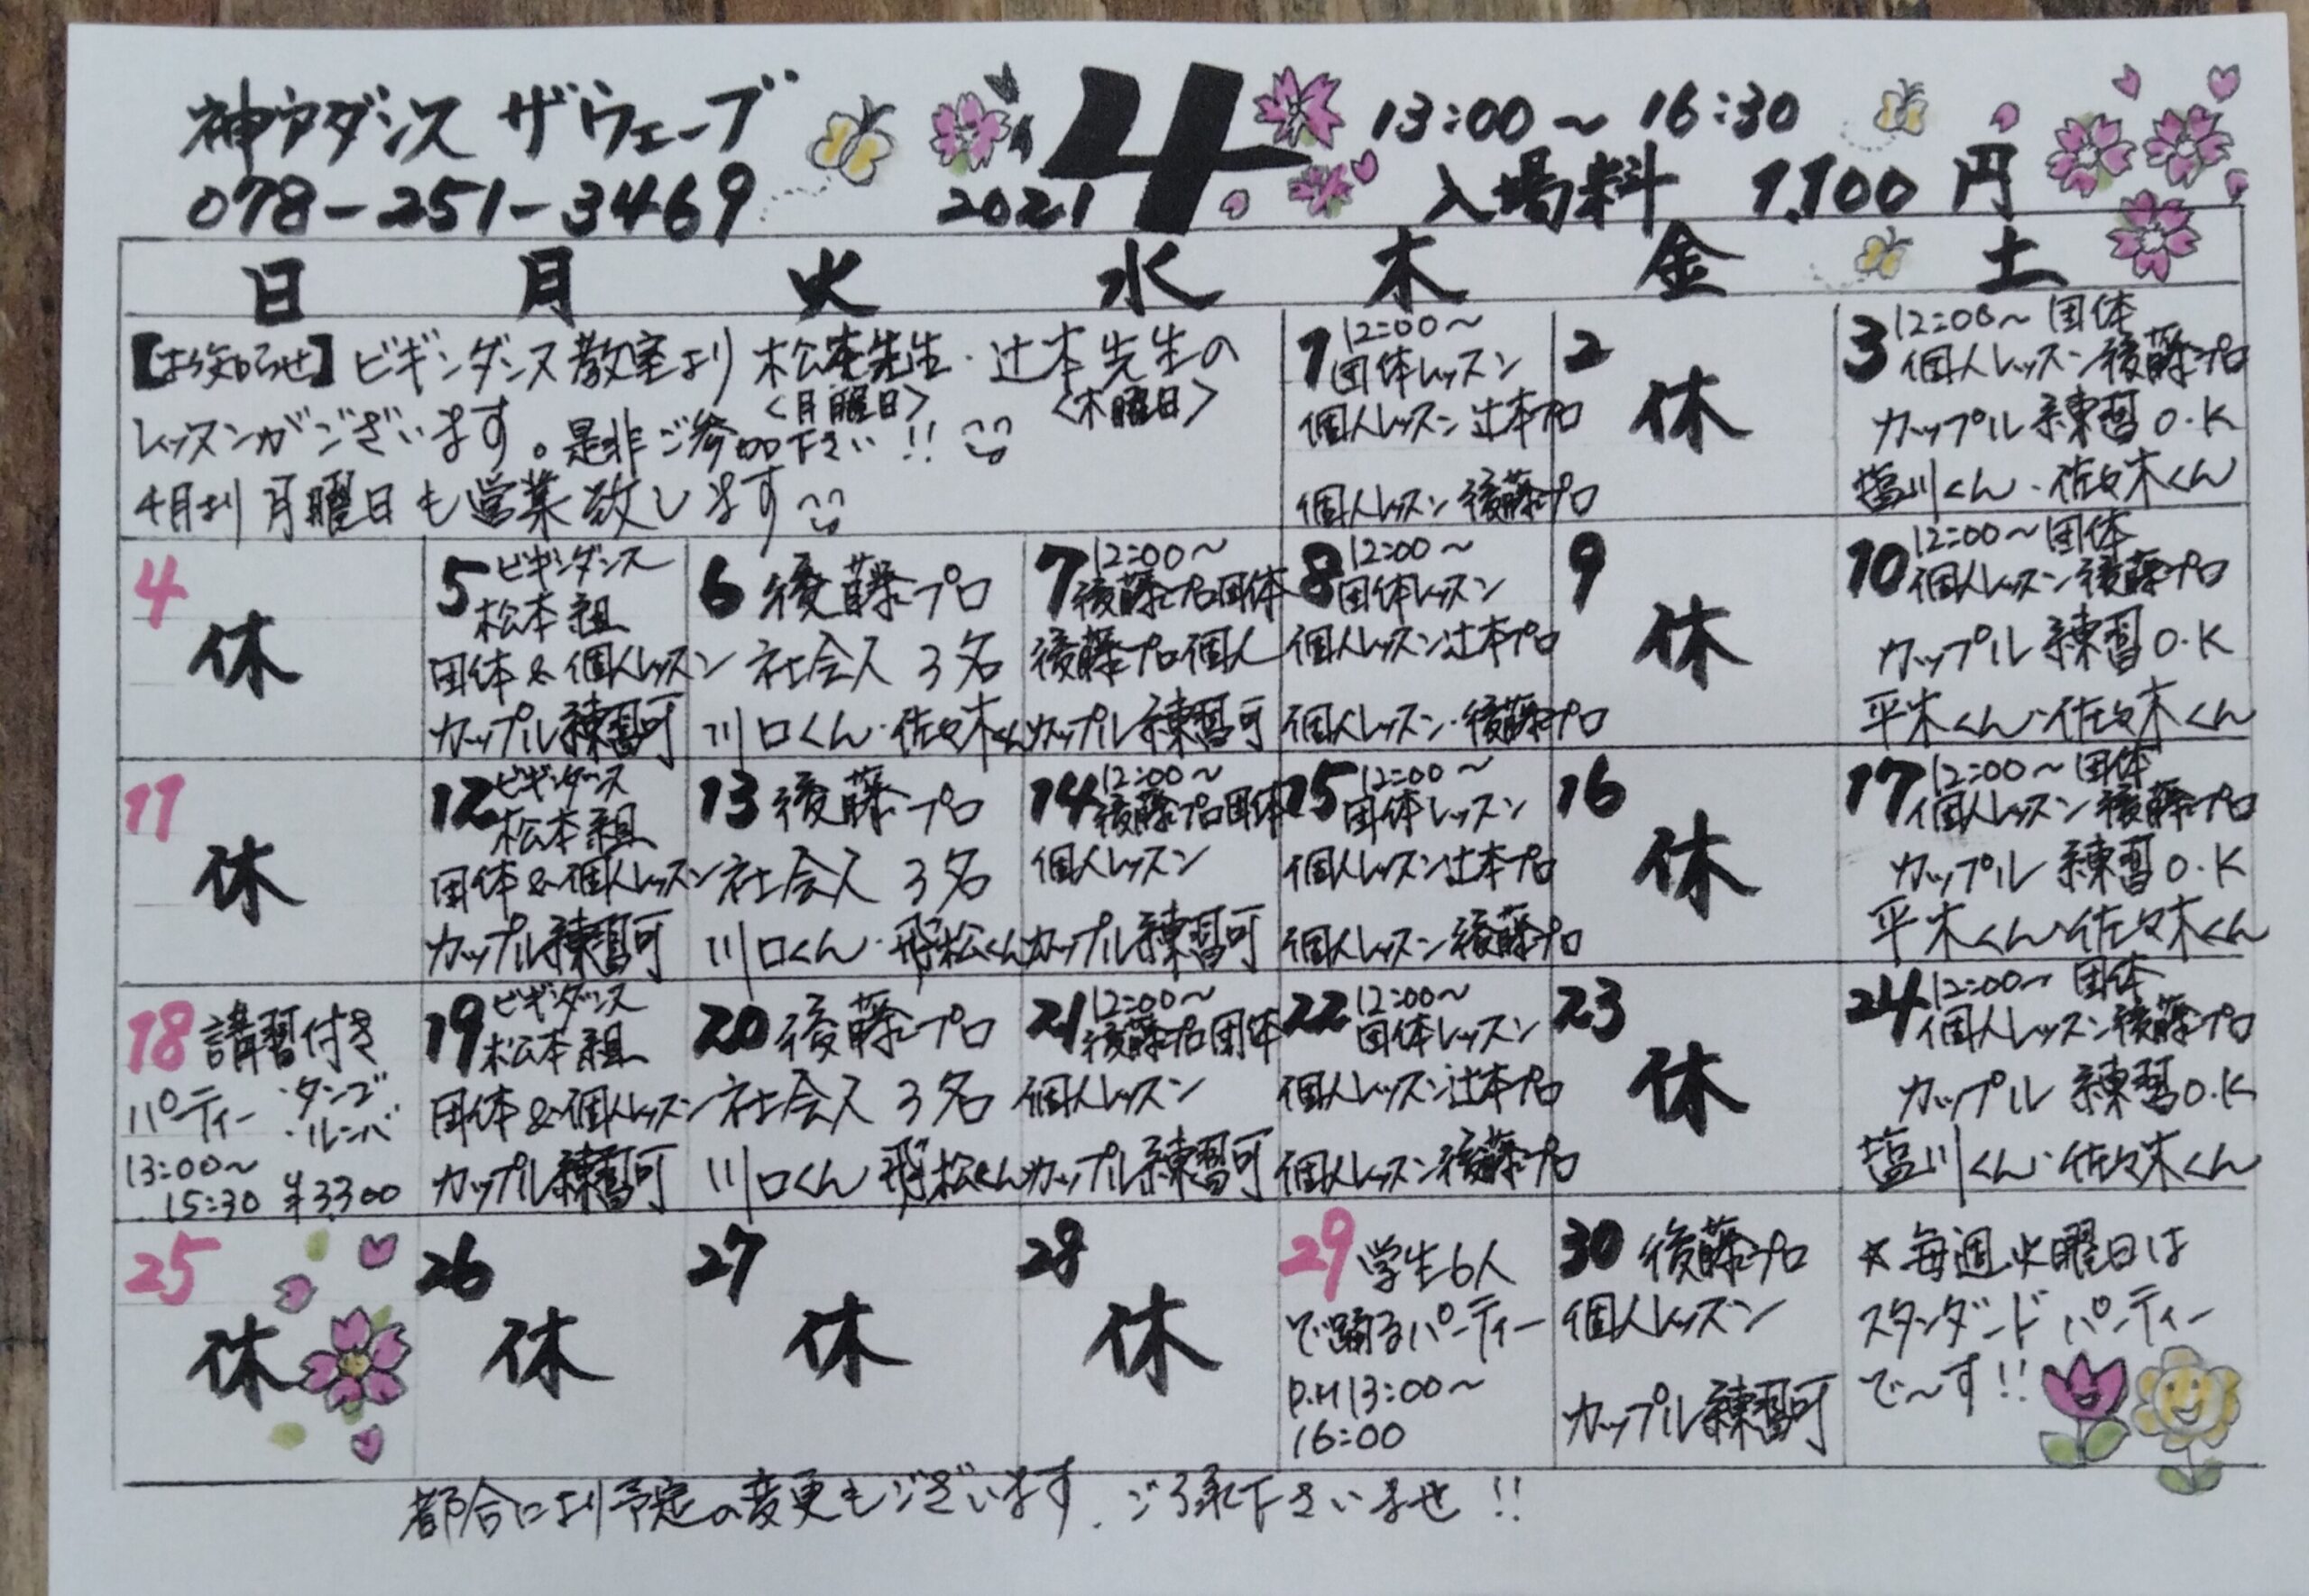 神戸ダンス ザウェーブ
078-251-3469
2021 4
13:00～16:30
入場料 1,100円
日 月 火 水 木 金 土
【お知らせ】ビギンダンス教室より 松本先生・辻本先生の
<月曜日> <木曜日>
レッスンがございます。是非ご参加下さい!!
4月より月曜日も営業致します
1 12:00～
団体レッスン
個人レッスン辻本プロ
個人レッスン後藤プロ
2
休
3 12:00～団体
個人レッスン後藤プロ
カップル練習O.K
塩川くん・佐々木くん
4
休
5 ビギンダンス
松本組
団体&個人レッスン
カップル練習可
6 後藤プロ
社会人3名
川口くん・佐々木くん
7 12:00～
後藤プロ団体
後藤プロ個人
カップル練習可
8 12:00～
団体レッスン
個人レッスン辻本プロ
個人レッスン・後藤プロ
9
休
10 12:00～団体
個人レッスン後藤プロ
カップル練習O.K
平木くん・佐々木くん
11
休
12 ビギンダンス
松本組
団体&個人レッスン
カップル練習可
13 後藤プロ
社会人3名
川口くん・飛松くん
14 12:00～
後藤プロ団体
個人レッスン
カップル練習可
15 12:00～
団体レッスン
個人レッスン辻本プロ
個人レッスン後藤プロ
16
休
17 12:00～団体
個人レッスン後藤プロ
カップル練習O.K
平木くん・佐々木くん
18 講習付き
パーティー ・タンゴ
・ルンバ
13:00～
15:30 ¥3,300
19 ビギンダンス
松本組
団体&個人レッスン
カップル練習可
20 後藤プロ
社会人3名
川口くん 飛松くん
21 12:00～
後藤プロ団体
個人レッスン
カップル練習可
22 12:00～
団体レッスン
個人レッスン辻本プロ
個人レッスン後藤プロ
23
休
24 12:00～団体
個人レッスン後藤プロ
カップル練習O.K
塩川くん・佐々木くん
25
休
26
休
27
休
28
休
29 学生6人
で踊るパーティー
P.M13:00～
16:00
30 後藤プロ
個人レッスン
カップル練習可
☆毎週火曜日は
スタンダードパーティー
で～す!!
都合により予定の変更もございます、ご了承下さいませ!!